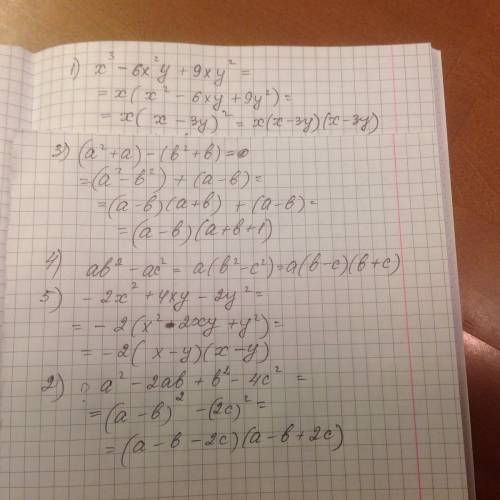 1) x³ - 6x²y + 9xy² =
= x( x² - 6xy + 9y²) =
= x( x - 3y)² = x(x-3y)(x-3y)
3) (a²+a) - (b²+b) =
= (a² - b²) + (a-b) =
= (a-b)(a+b) + (a-b) =
= (a-b)(a+b+1)
4) ab² - ac² = a(b²-c²) = a(b-c)(b+c)
5) - 2x² + 4xy - 2y² =
= - 2(x² - 2xy + y²) =
= - 2( x-y)(x-y)
2) a² - 2ab + b² - 4c² =
= (a - b)² - (2c)² =
= (a - b - 2c)(a - b + 2c)